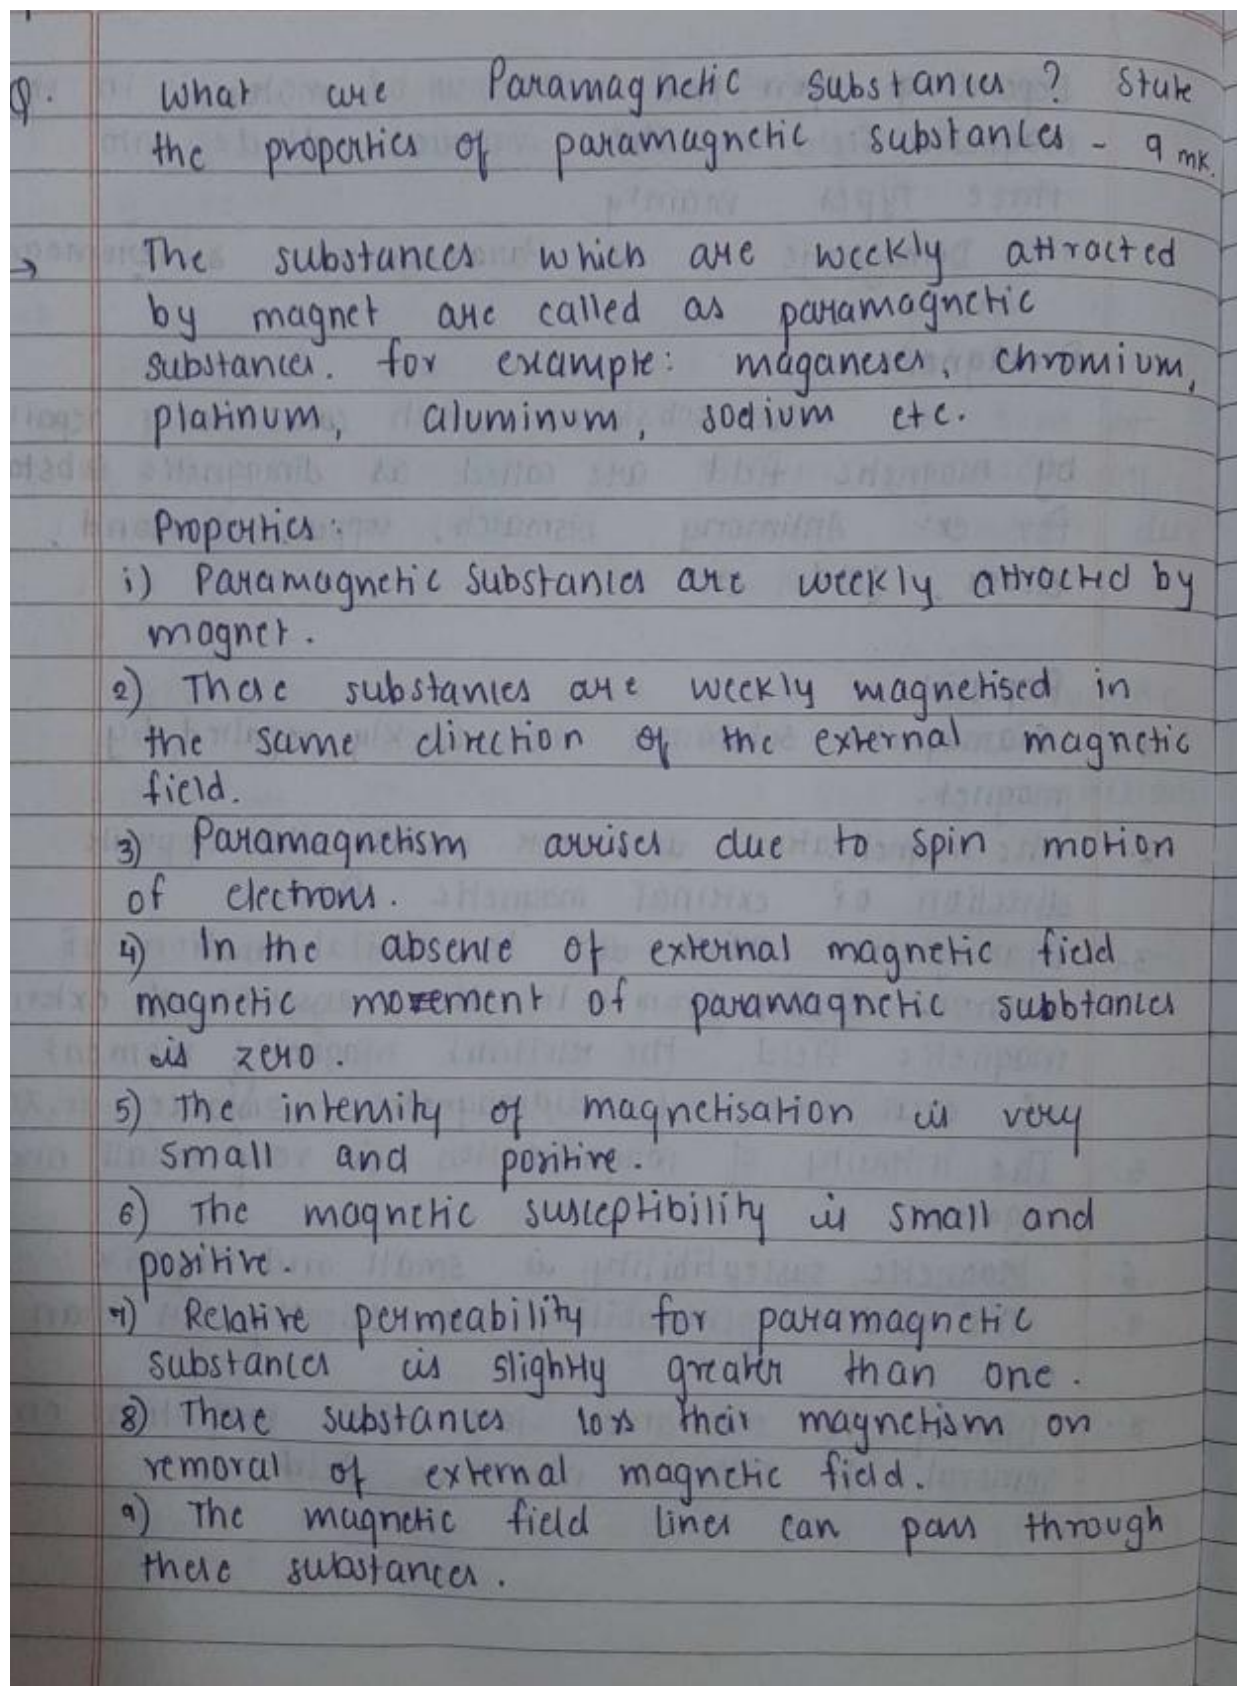 Q. What are Paramagnetic substances? State
the properties of paramagnetic substances - 9 mk.
→ The substances which are weekly attracted
by magnet are called as paramagnetic
substances. for example: maganeses, chromium,
platinum, aluminum, sodium etc.
Properties:
1) Paramagnetic substances are weekly attracted by
magnet.
2) These substances are weekly magnetised in
the same direction of the external magnetic
field.
3) Paramagnetism arrises due to spin motion
of electrons.
4) In the absence of external magnetic field
magnetic movement of paramagnetic subbtances
is zero.
5) The intensity of magnetisation is very
small and positive.
6) The magnetic susceptibility is small and
positive.
7) Relative permeability for paramagnetic
substances is slightly greater than one.
8) These substances loss their magnetism on
removal of external magnetic field.
9) The magnetic field lines can pass through
these substances.